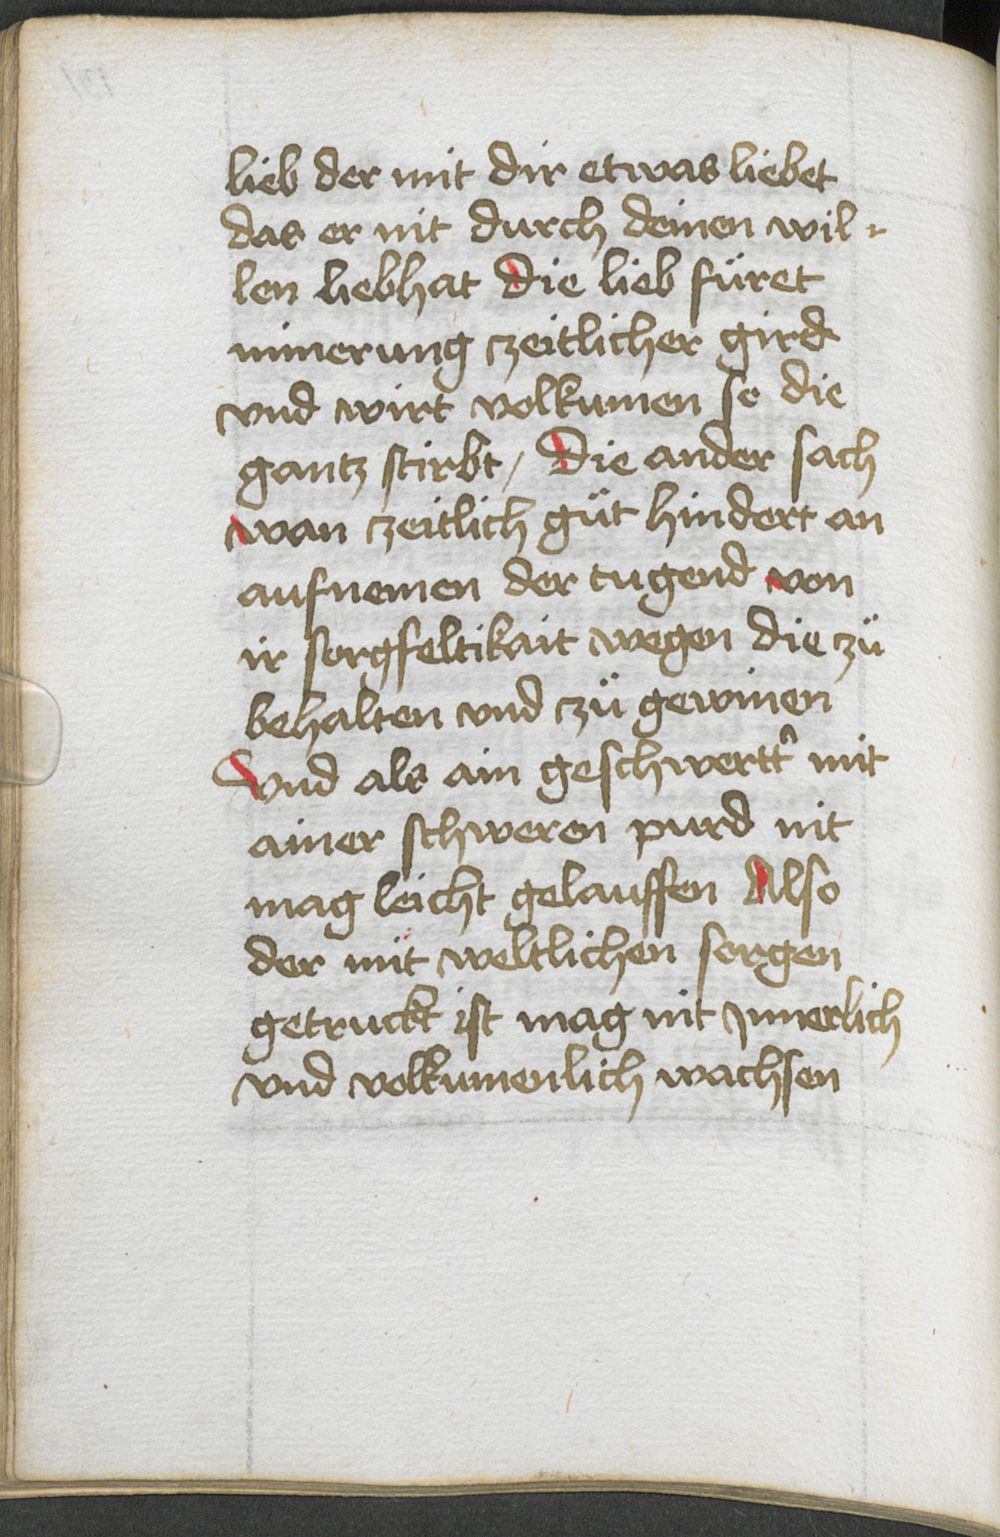 lieb der mit dir etwas liebet
das er nit durch deinen wil-
len liebhat Die lieb füret
minerung czeitlicher gird
vnd wirt volkumen so die
gantz stirbt / Die ander sach
wan czeitlich güt hindert an
aufnemen der tugend von
ir sorgfeltikait wegen die zü
behalten vnd czü gewinen
Vnd als ain geschwertt' mit
ainer schweren purd nit
mag leicht gelauffen Also
der mit weltlichen sorgen
getruckt ist mag nit Jnnerlich
vnd volkumenlich wachsen